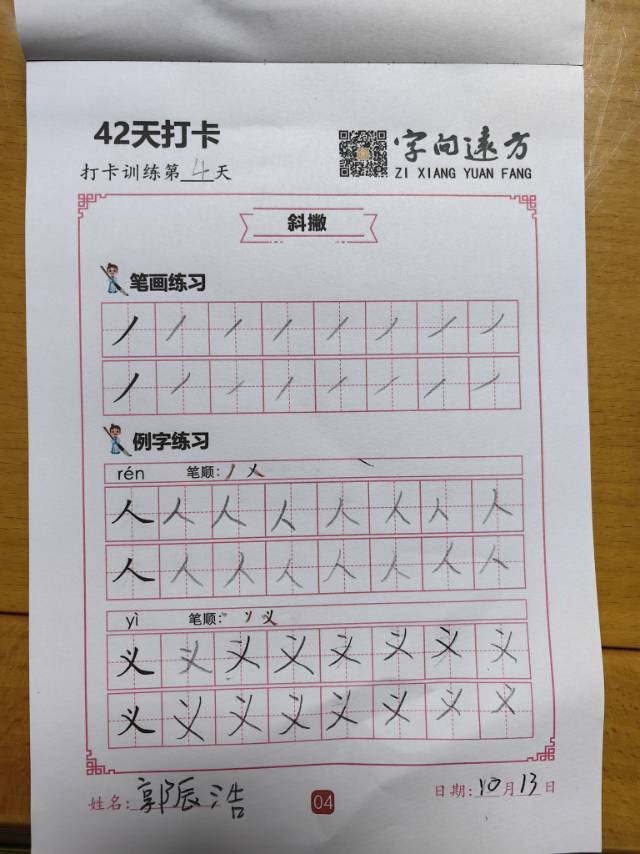 42天打卡
字向远方
打卡训练第4天
ZI XIANG YUAN FANG
斜撇
笔画练习
丿丿丿丿丿丿丿丿
丿丿丿丿丿丿丿丿
例字练习
rén 笔顺:丿人
人人人人人人人人
人人人人人人人人
yì 笔顺:丶丷义
义义义义义义义义
义义义义义义义义
姓名:郭辰浩
04
日期:10月13日